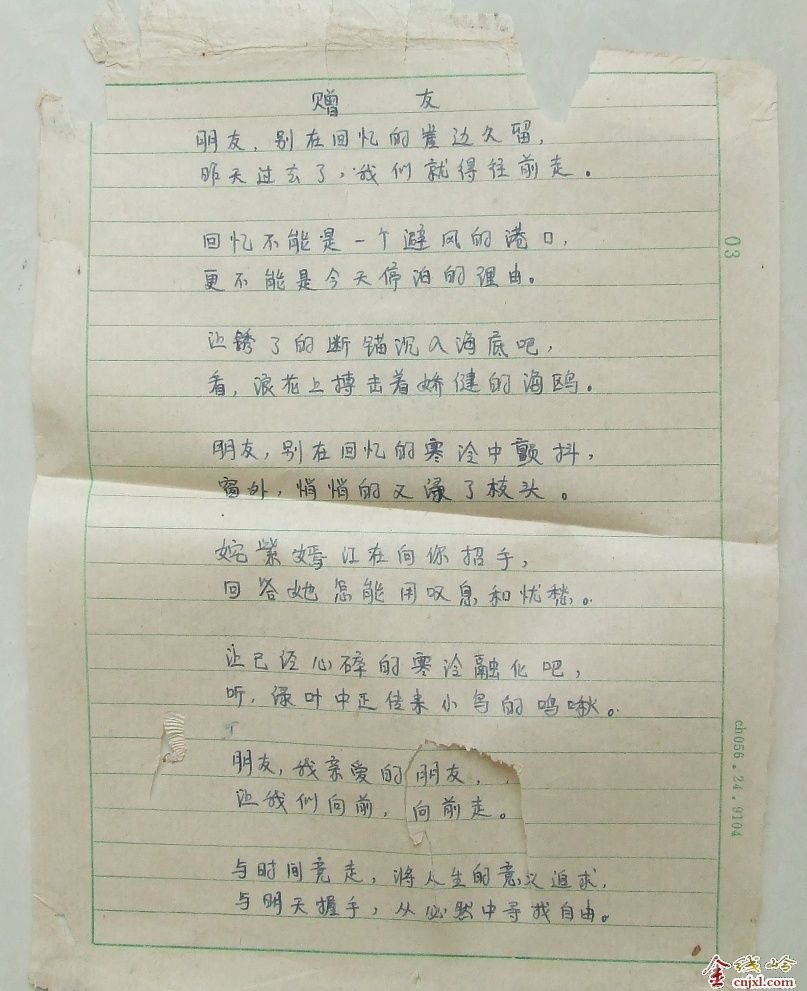 赠 友
朋友，别在回忆的崖边久留，
昨天过去了，我们就得往前走。
回忆不能是一个避风的港口，
更不能是今天停泊的理由。
让锈了的断锚沉入海底吧，
看，浪花上搏击着娇健的海鸥。
朋友，别在回忆的寒冷中颤抖，
窗外，悄悄的又涤了枝头。
姹紫嫣红在向你招手，
回答她怎能用叹息和忧愁。
让已经心碎的寒冷融化吧，
听，绿叶中正传来小鸟的鸣啾。
朋友，我亲爱的朋友，
让我们向前，向前走。
与时间竞走，将人生的意义追求，
与明天握手，从必然中寻找自由。
03
ch056.24.9104
金线岭
cnjxl.com